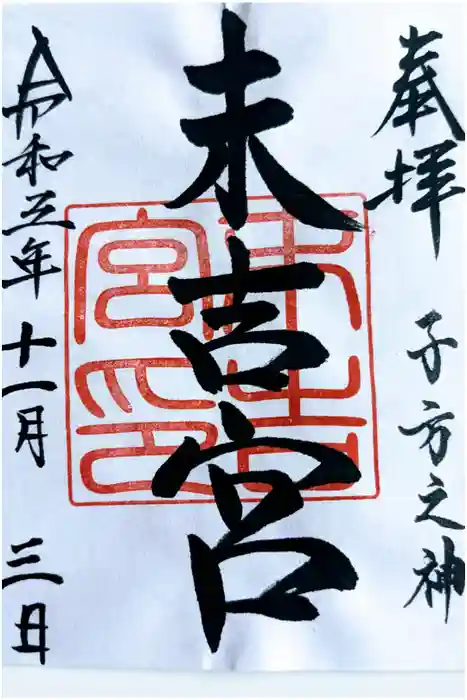 奉拝 子方之神
末吉宮
令和五年十一月三日
末吉
宮印